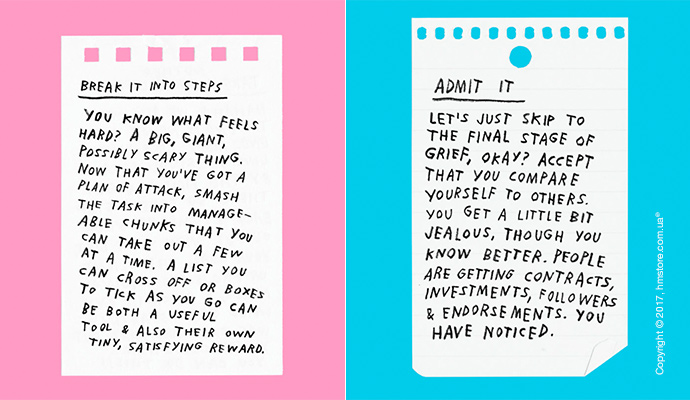 BREAK IT INTO STEPS
YOU KNOW WHAT FEELS
HARD? A BIG, GIANT,
POSSIBLY SCARY THING.
NOW THAT YOU'VE GOT A
PLAN OF ATTACK, SMASH
THE TASK INTO MANAGE-
ABLE CHUNKS THAT YOU
CAN TAKE OUT A FEW
AT A TIME. A LIST YOU
CAN CROSS OFF OR BOXES
TO TICK AS YOU GO CAN
BE BOTH A USEFUL
TOOL & ALSO THEIR OWN
TINY, SATISFYING REWARD.
ADMIT IT
LET'S JUST SKIP TO
THE FINAL STAGE OF
GRIEF, OKAY? ACCEPT
THAT YOU COMPARE
YOURSELF TO OTHERS.
YOU GET A LITTLE BIT
JEALOUS, THOUGH YOU
KNOW BETTER. PEOPLE
ARE GETTING CONTRACTS,
INVESTMENTS, FOLLOWERS
& ENDORSEMENTS. YOU
HAVE NOTICED.
Copyright © 2017, hmstore.com.ua®